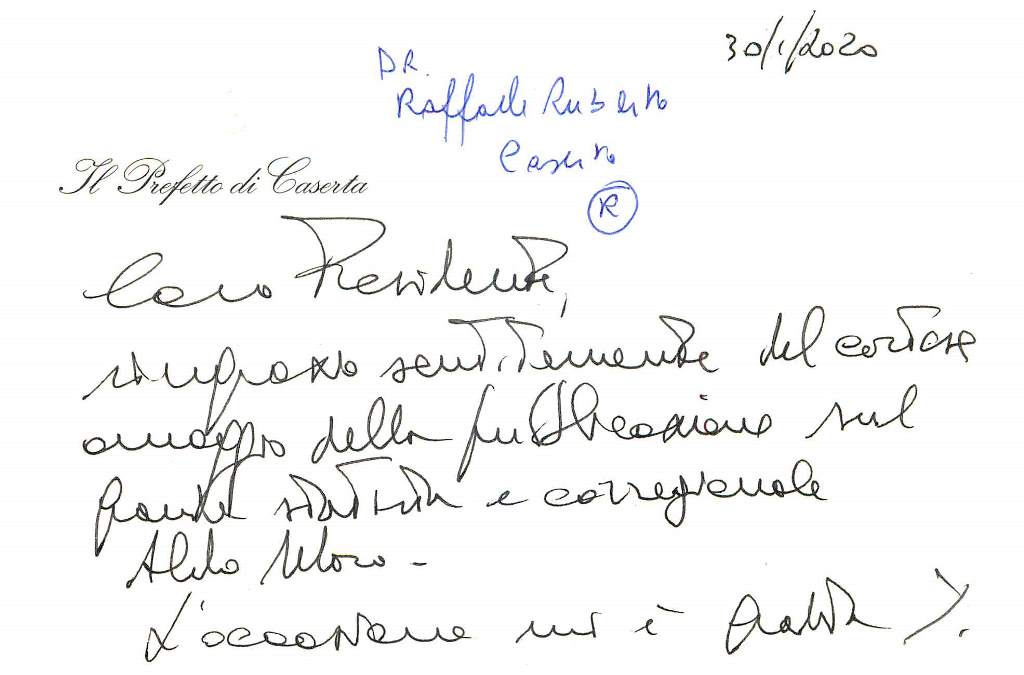 30/1/2020
DR.
Raffaele Ruberto
Caserta
R
Il Prefetto di Caserta
Caro Presidente,
ringrazio sentitamente del cortese
omaggio della pubblicazione sul
grande statista e corregionale
Aldo Moro -
L'occasione mi è gradita